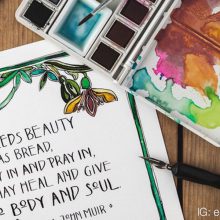 EDS BEAUTY
AS BREAD,
Y IN AND PRAY IN,
AY HEAL AND GIVE
O BODY AND SOUL.
JOHN MUIR
IG: e